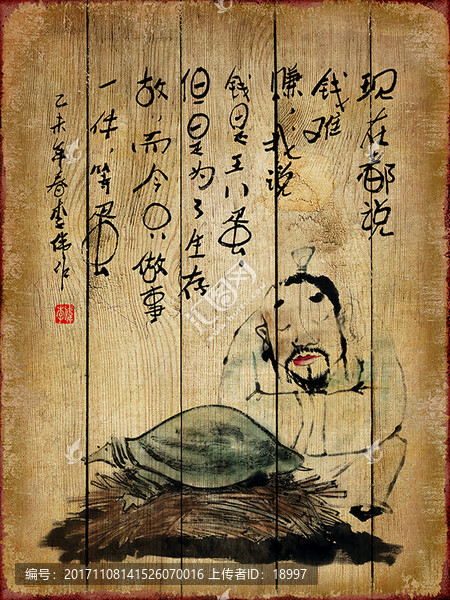 现在都说
钱难
赚，我说
钱是王八蛋，
但是为了生存
故，而今只做事
一件，等蛋
乙未年春李伟作
汇图网
编号：20171108141526070016 上传者ID：18997